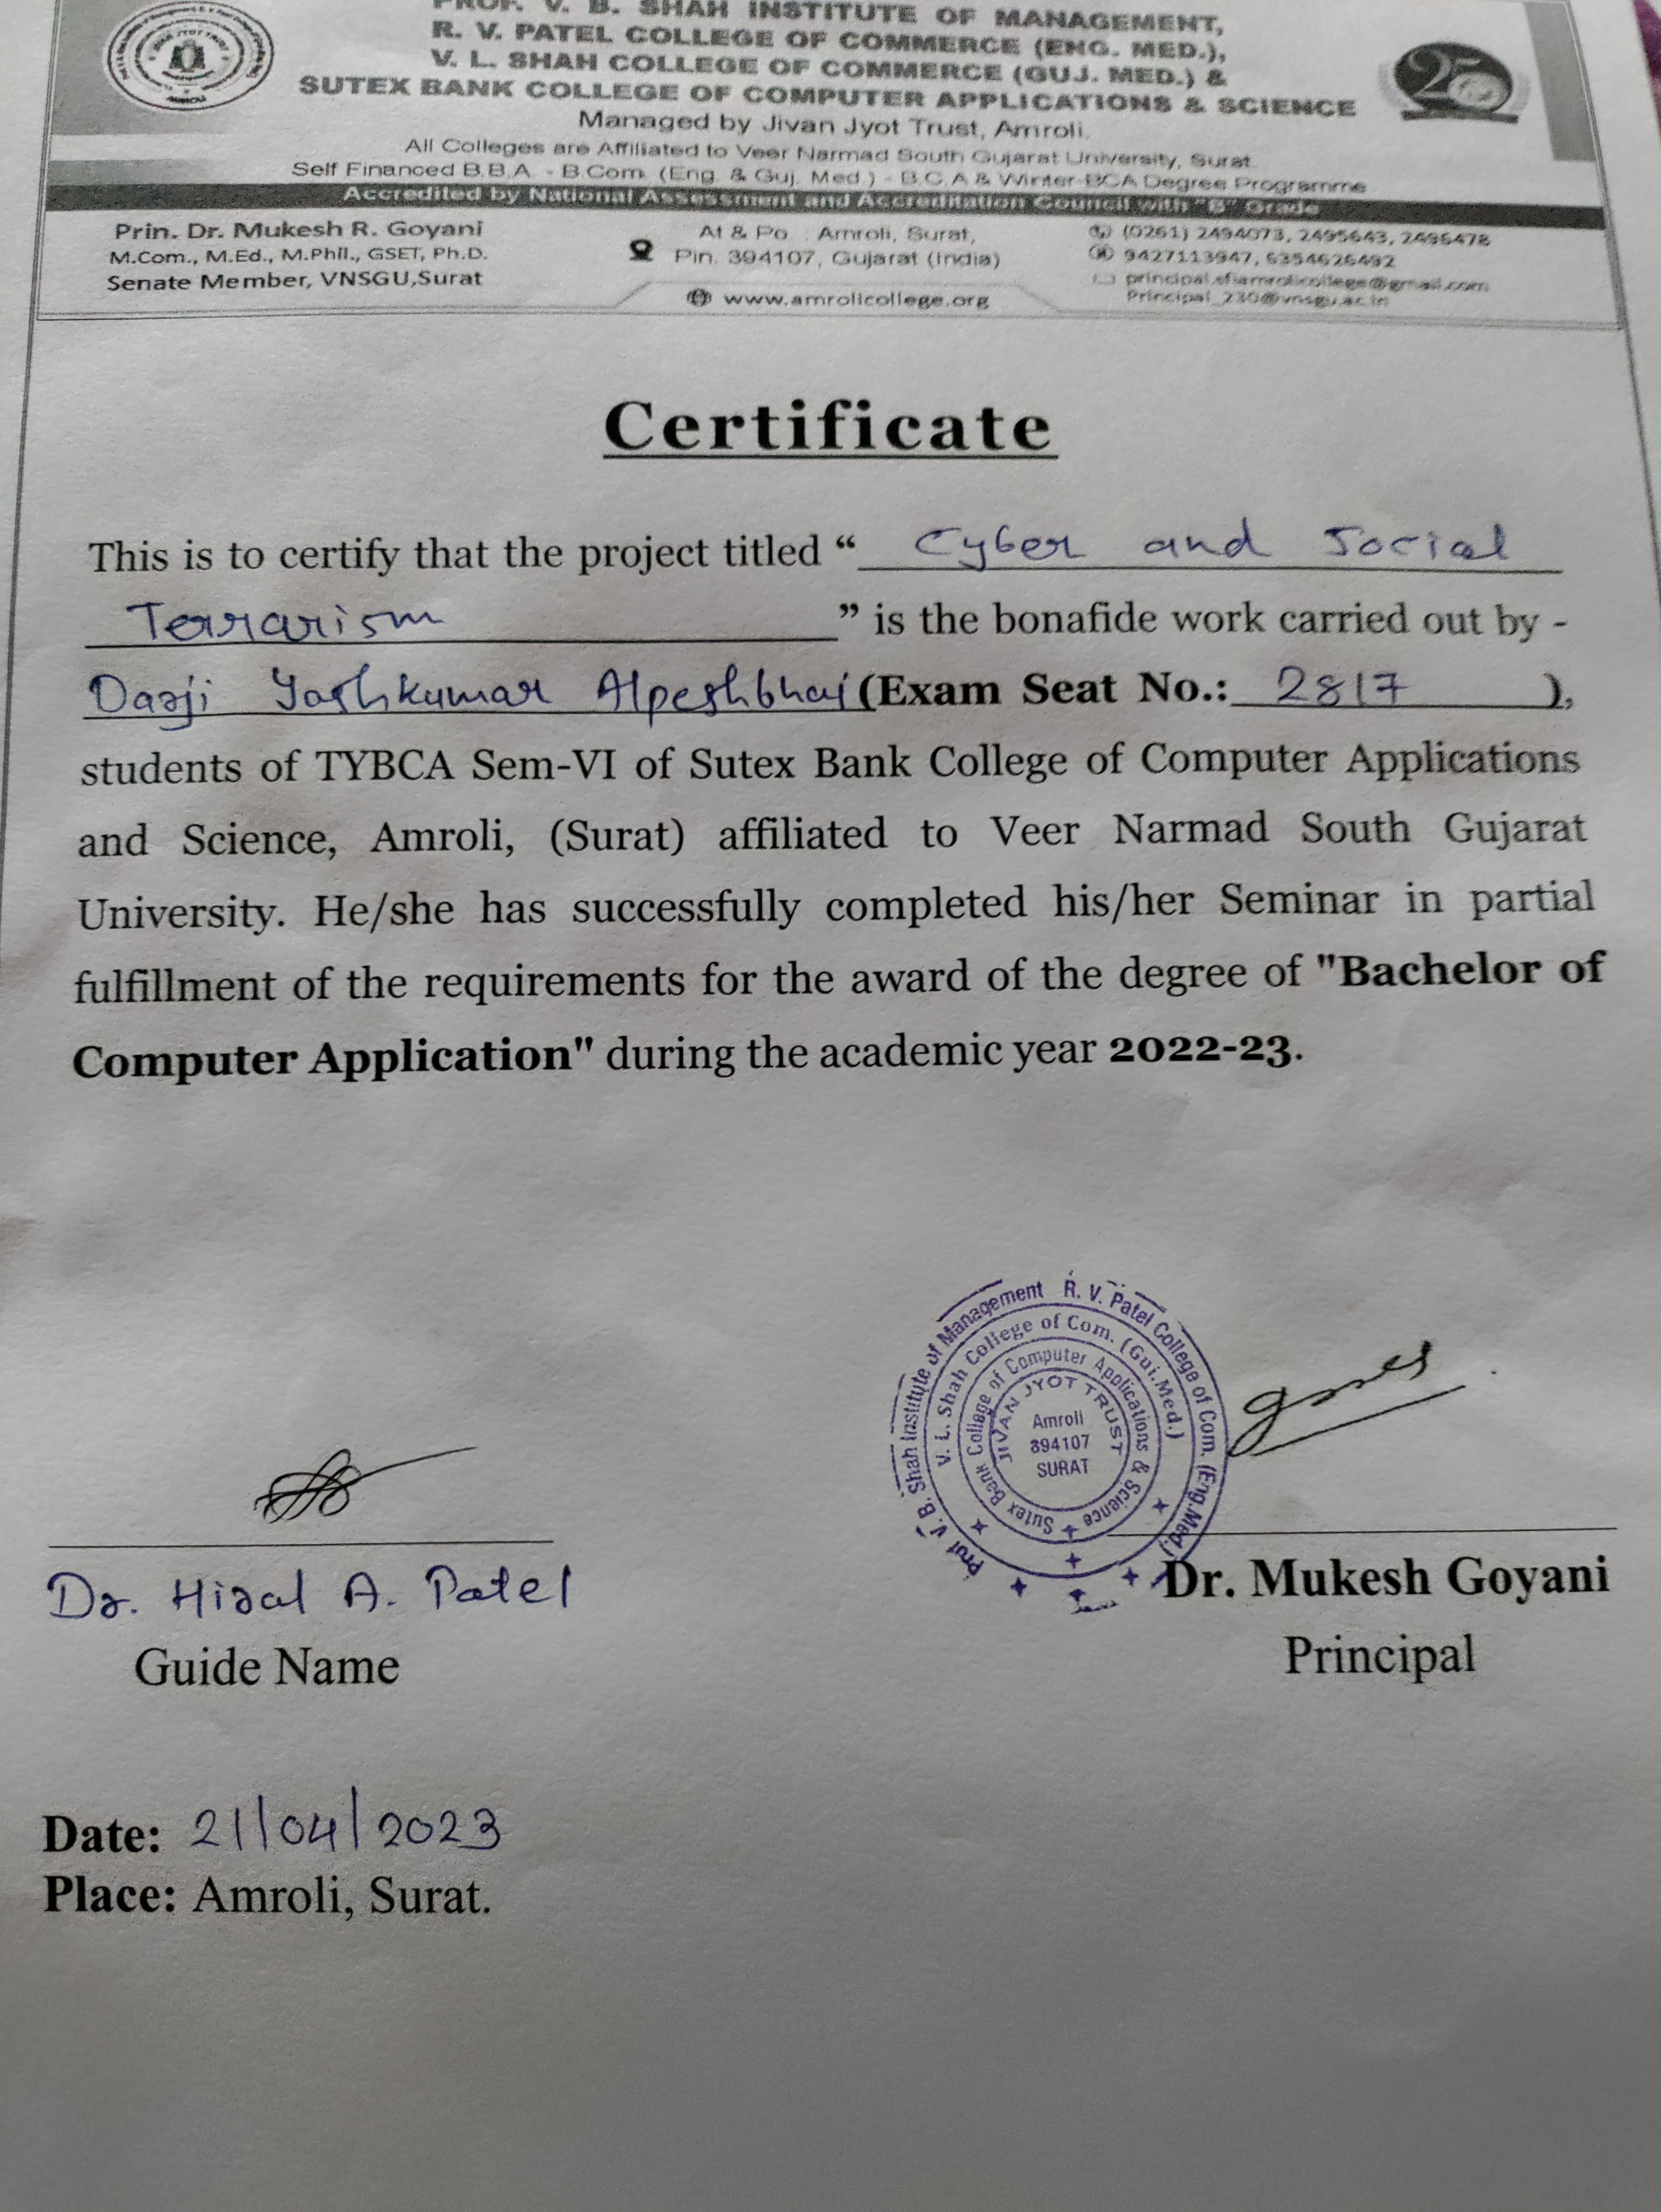 PROF. V. B. SHAH INSTITUTE OF MANAGEMENT,
R. V. PATEL COLLEGE OF COMMERCE (ENG. MED.),
V. L. SHAH COLLEGE OF COMMERCE (GUJ. MED.) &
SUTEX BANK COLLEGE OF COMPUTER APPLICATIONS & SCIENCE
Managed by Jivan Jyot Trust, Amroli.
All Colleges are Affiliated to Veer Narmad South Gujarat University, Surat.
Self Financed B.B.A. - B.Com. (Eng. & Guj. Med.) - B.C.A & Winter-BCA Degree Programme
Accredited by National Assessment and Accreditation Council with "B" Grade
Prin. Dr. Mukesh R. Goyani
M.Com., M.Ed., M.Phil., GSET, Ph.D.
Senate Member, VNSGU,Surat
At & Po : Amroli, Surat,
Pin. 394107, Gujarat (India)
www.amrolicollege.org
(0261) 2494073, 2495643, 2496478
9427113947, 6354626492
Principal_230@vnsgu.ac.in
25
Certificate
This is to certify that the project titled “ Cyber and Social
Terrarism ” is the bonafide work carried out by -
Darji Yashkumar Alpeshbhai (Exam Seat No.: 2817 ),
students of TYBCA Sem-VI of Sutex Bank College of Computer Applications
and Science, Amroli, (Surat) affiliated to Veer Narmad South Gujarat
University. He/she has successfully completed his/her Seminar in partial
fulfillment of the requirements for the award of the degree of "Bachelor of
Computer Application" during the academic year 2022-23.
Prof V. B. Shah Institute of Management R. V. Patel College of Com. (Eng.Med.)
V. L. Shah College of Com. (Guj.Med.)
Sutex Bank College of Computer Applications & Science
JIVAN JYOT TRUST
Amroli
394107
SURAT
Dr. Hiral A. Patel
Guide Name
Dr. Mukesh Goyani
Principal
Date: 21/04/2023
Place: Amroli, Surat.